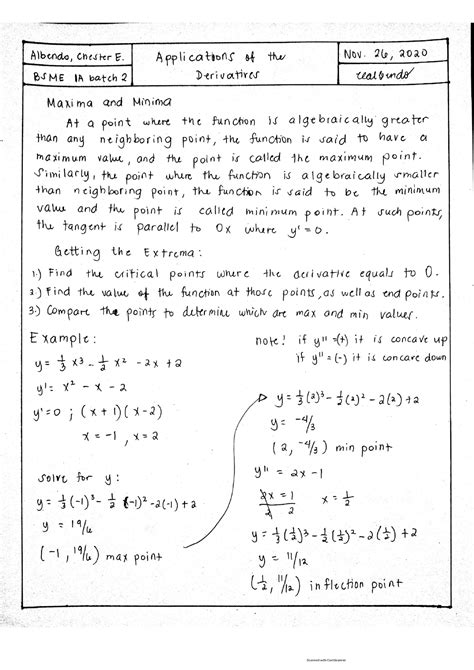 Albendo, Chester E.
BSME 1A batch 2
Applications of the
Derivatives
Nov. 26, 2020
Maxima and Minima
At a point where the function is algebraically greater
than any neighboring point, the function is said to have a
maximum value, and the point is called the maximum point.
Similarly, the point where the function is algebraically smaller
than neighboring point, the function is said to be the minimum
value and the point is called minimum point. At such points,
the tangent is parallel to Ox where y'=0.
Getting the Extrema:
1.) Find the critical points where the derivative equals to 0.
2.) Find the value of the function at those points, as well as end points.
3.) Compare the points to determine which are max and min values.
Example:
y = 1/3 x³ - 1/2 x² - 2x + 2
y' = x² - x - 2
y'=0 ; (x+1)(x-2)
x = -1 , x = 2
solve for y:
y = 1/3 (-1)³ - 1/2 (-1)² - 2(-1) + 2
y = 19/6
(-1, 19/6) max point
note! if y" = (+) it is concave up
if y" = (-) it is concave down
y = 1/3 (2)³ - 1/2 (2)² - 2(2) + 2
y = -4/3
(2, -4/3) min point
y" = 2x - 1
2x/2 = 1/2 x = 1/2
y = 1/3 (1/2)³ - 1/2 (1/2)² - 2(1/2) + 2
y = 11/12
(1/2, 11/12) inflection point
Scanned with CamScanner